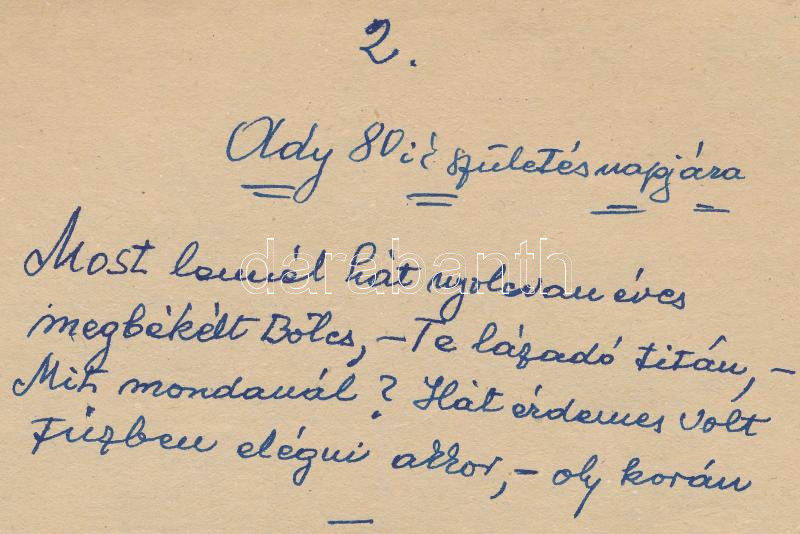 2.
Ady 80ik születésnapjára
Most lennél hát nyolcvan éves
megbékélt Bölcs, – Te lázadó titán, –
Mit mondanál? Hát érdemes volt
Tűzben elégni akkor, – oly korán
darabanth